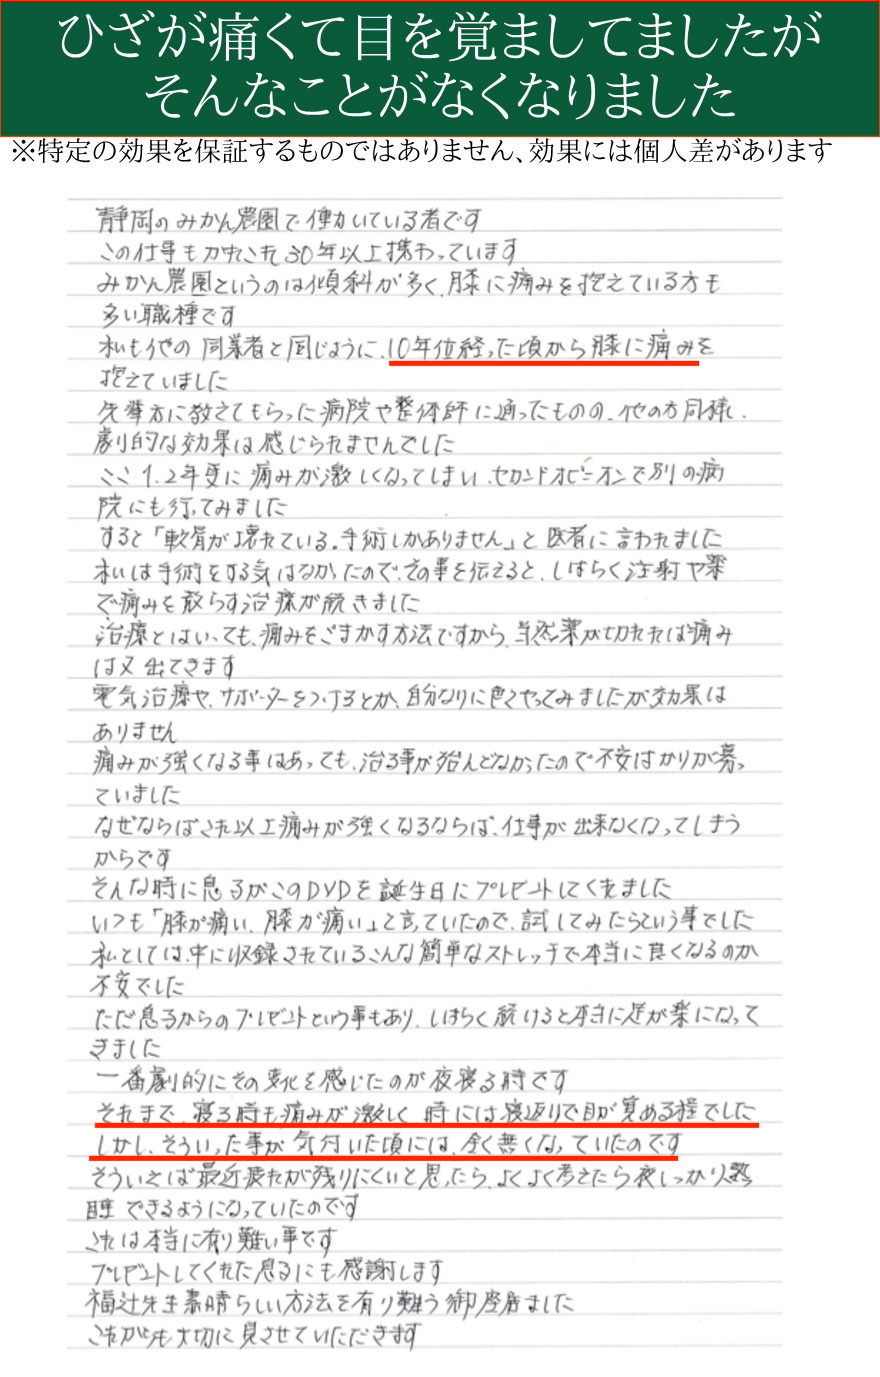 ひざが痛くて目を覚ましてましたが
そんなことがなくなりました
※特定の効果を保証するものではありません、効果には個人差があります
静岡のみかん農園で働かいている者です
この仕事もかれこれ30年以上携わっています
みかん農園というのは傾斜が多く、膝に痛みを抱えている方も
多い職種です
私も他の同業者と同じように、10年位経った頃から膝に痛みを
抱えていました
先輩方に教えてもらった病院や整体師に通ったものの、他の方同様、
劇的な効果は感じられませんでした
ここ1、2年更に痛みが激しくなってしまい、セカンドオピニオンで別の病
院にも行ってみました
すると「軟骨が壊れている。手術しかありません」と医者に言われました
私は手術をする気はなかったので、その事を伝えると、しばらく注射や薬
で痛みを散らす治療が続きました
治療とはいっても、痛みをごまかす方法ですから、当然薬が切れれば痛み
は又出てきます
電気治療や、サポーターをつけるとか、自分なりに色々やってみましたが効果は
ありません
痛みが強くなる事はあっても、治る事が殆んどなかったので不安ばかりが募っ
ていました
なぜならばこれ以上痛みが強くなるならば、仕事が出来なくなってしまう
からです
そんな時に息子がこのDVDを誕生日にプレゼントしてくれました
いつも「膝が痛い、膝が痛い」と言っていたので、試してみたらという事でした
私としては、中に収録されているこんな簡単なストレッチで本当に良くなるのか
不安でした
ただ息子からのプレゼントという事もあり、しばらく続けると本当に足が楽になって
きました
一番劇的にその変化を感じたのが夜寝る時です
それまで、寝る時も痛みが激しく、時には寝返りで目が覚める程でした
しかし、そういった事が気付いた頃には、全く無くなっていたのです
そういえば最近疲れが残りにくいと思ったら、よくよく考えたら夜しっかり熟
睡できるようになっていたのです
これは本当に有り難い事です
プレゼントしてくれた息子にも感謝します
福辻先生素晴らしい方法を有り難う御座居ました
これからも大切に見させていただきます